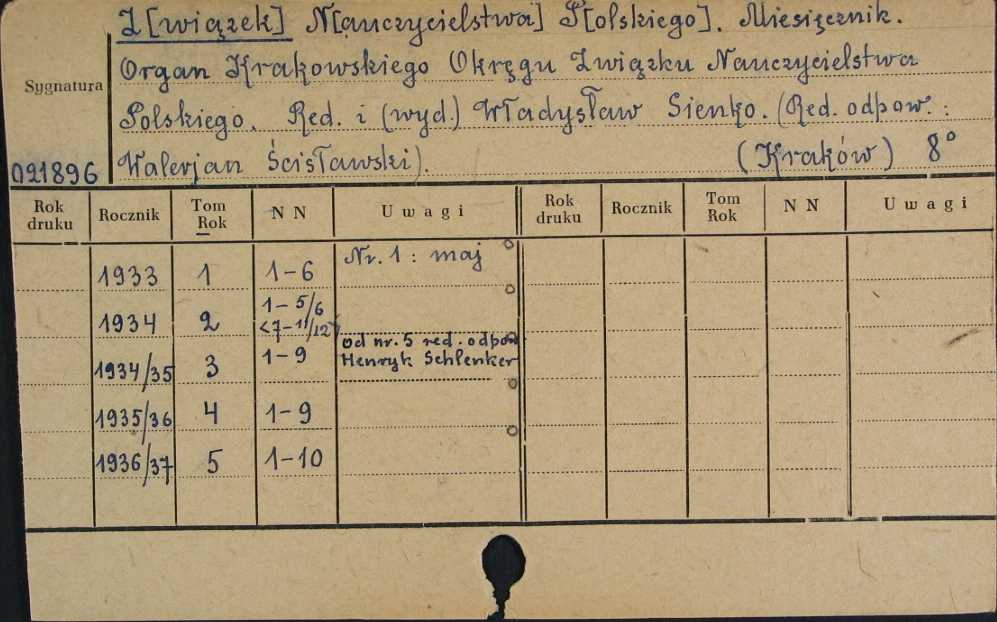 Z[wiązek] N[auczycielstwa] P[olskiego]. Miesięcznik.
Organ Krakowskiego Okręgu Związku Nauczycielstwa
Sygnatura
Polskiego. Red. i (wyd.) Władysław Sieńko. (Red. odpow. :
021896 Walerjan Ścisławski). (Kraków) 8°
Rok druku Rocznik Tom Rok N N Uwagi Rok druku Rocznik Tom Rok N N Uwagi
1933 1 1-6 Nr. 1 : maj
1934 2 1-5/6
<7-11/12>
od nr. 5 red. odpow
1934/35 3 1-9 Henryk Schlenker
1935/36 4 1-9
1936/37 5 1-10